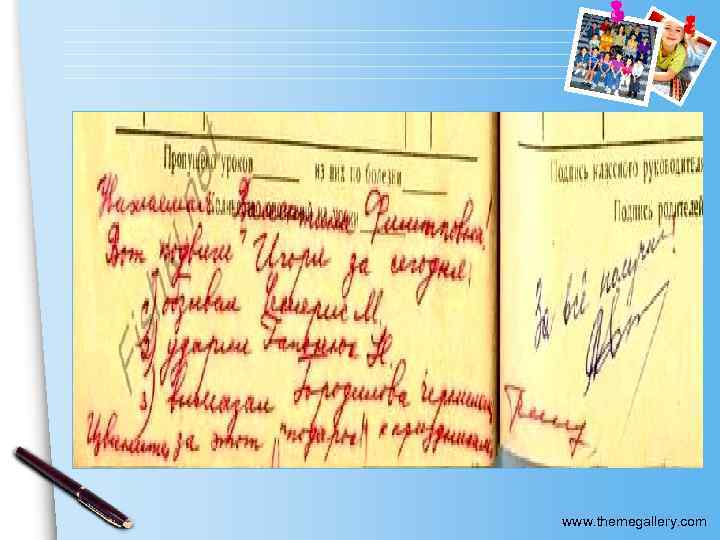 Пропущено уроков из них по болезни
Уважаемая Валентина Филипповна!
Вот "подвиги" Игоря за сегодня:
1) обзывал Валерию М.
2) ударил Н.
3) вымазал Бородилова чернилами
Извините, за этот "подарок" к праздникам,
Подпись классного руководителя
Подпись родителей
За всё получил!
www.themegallery.com